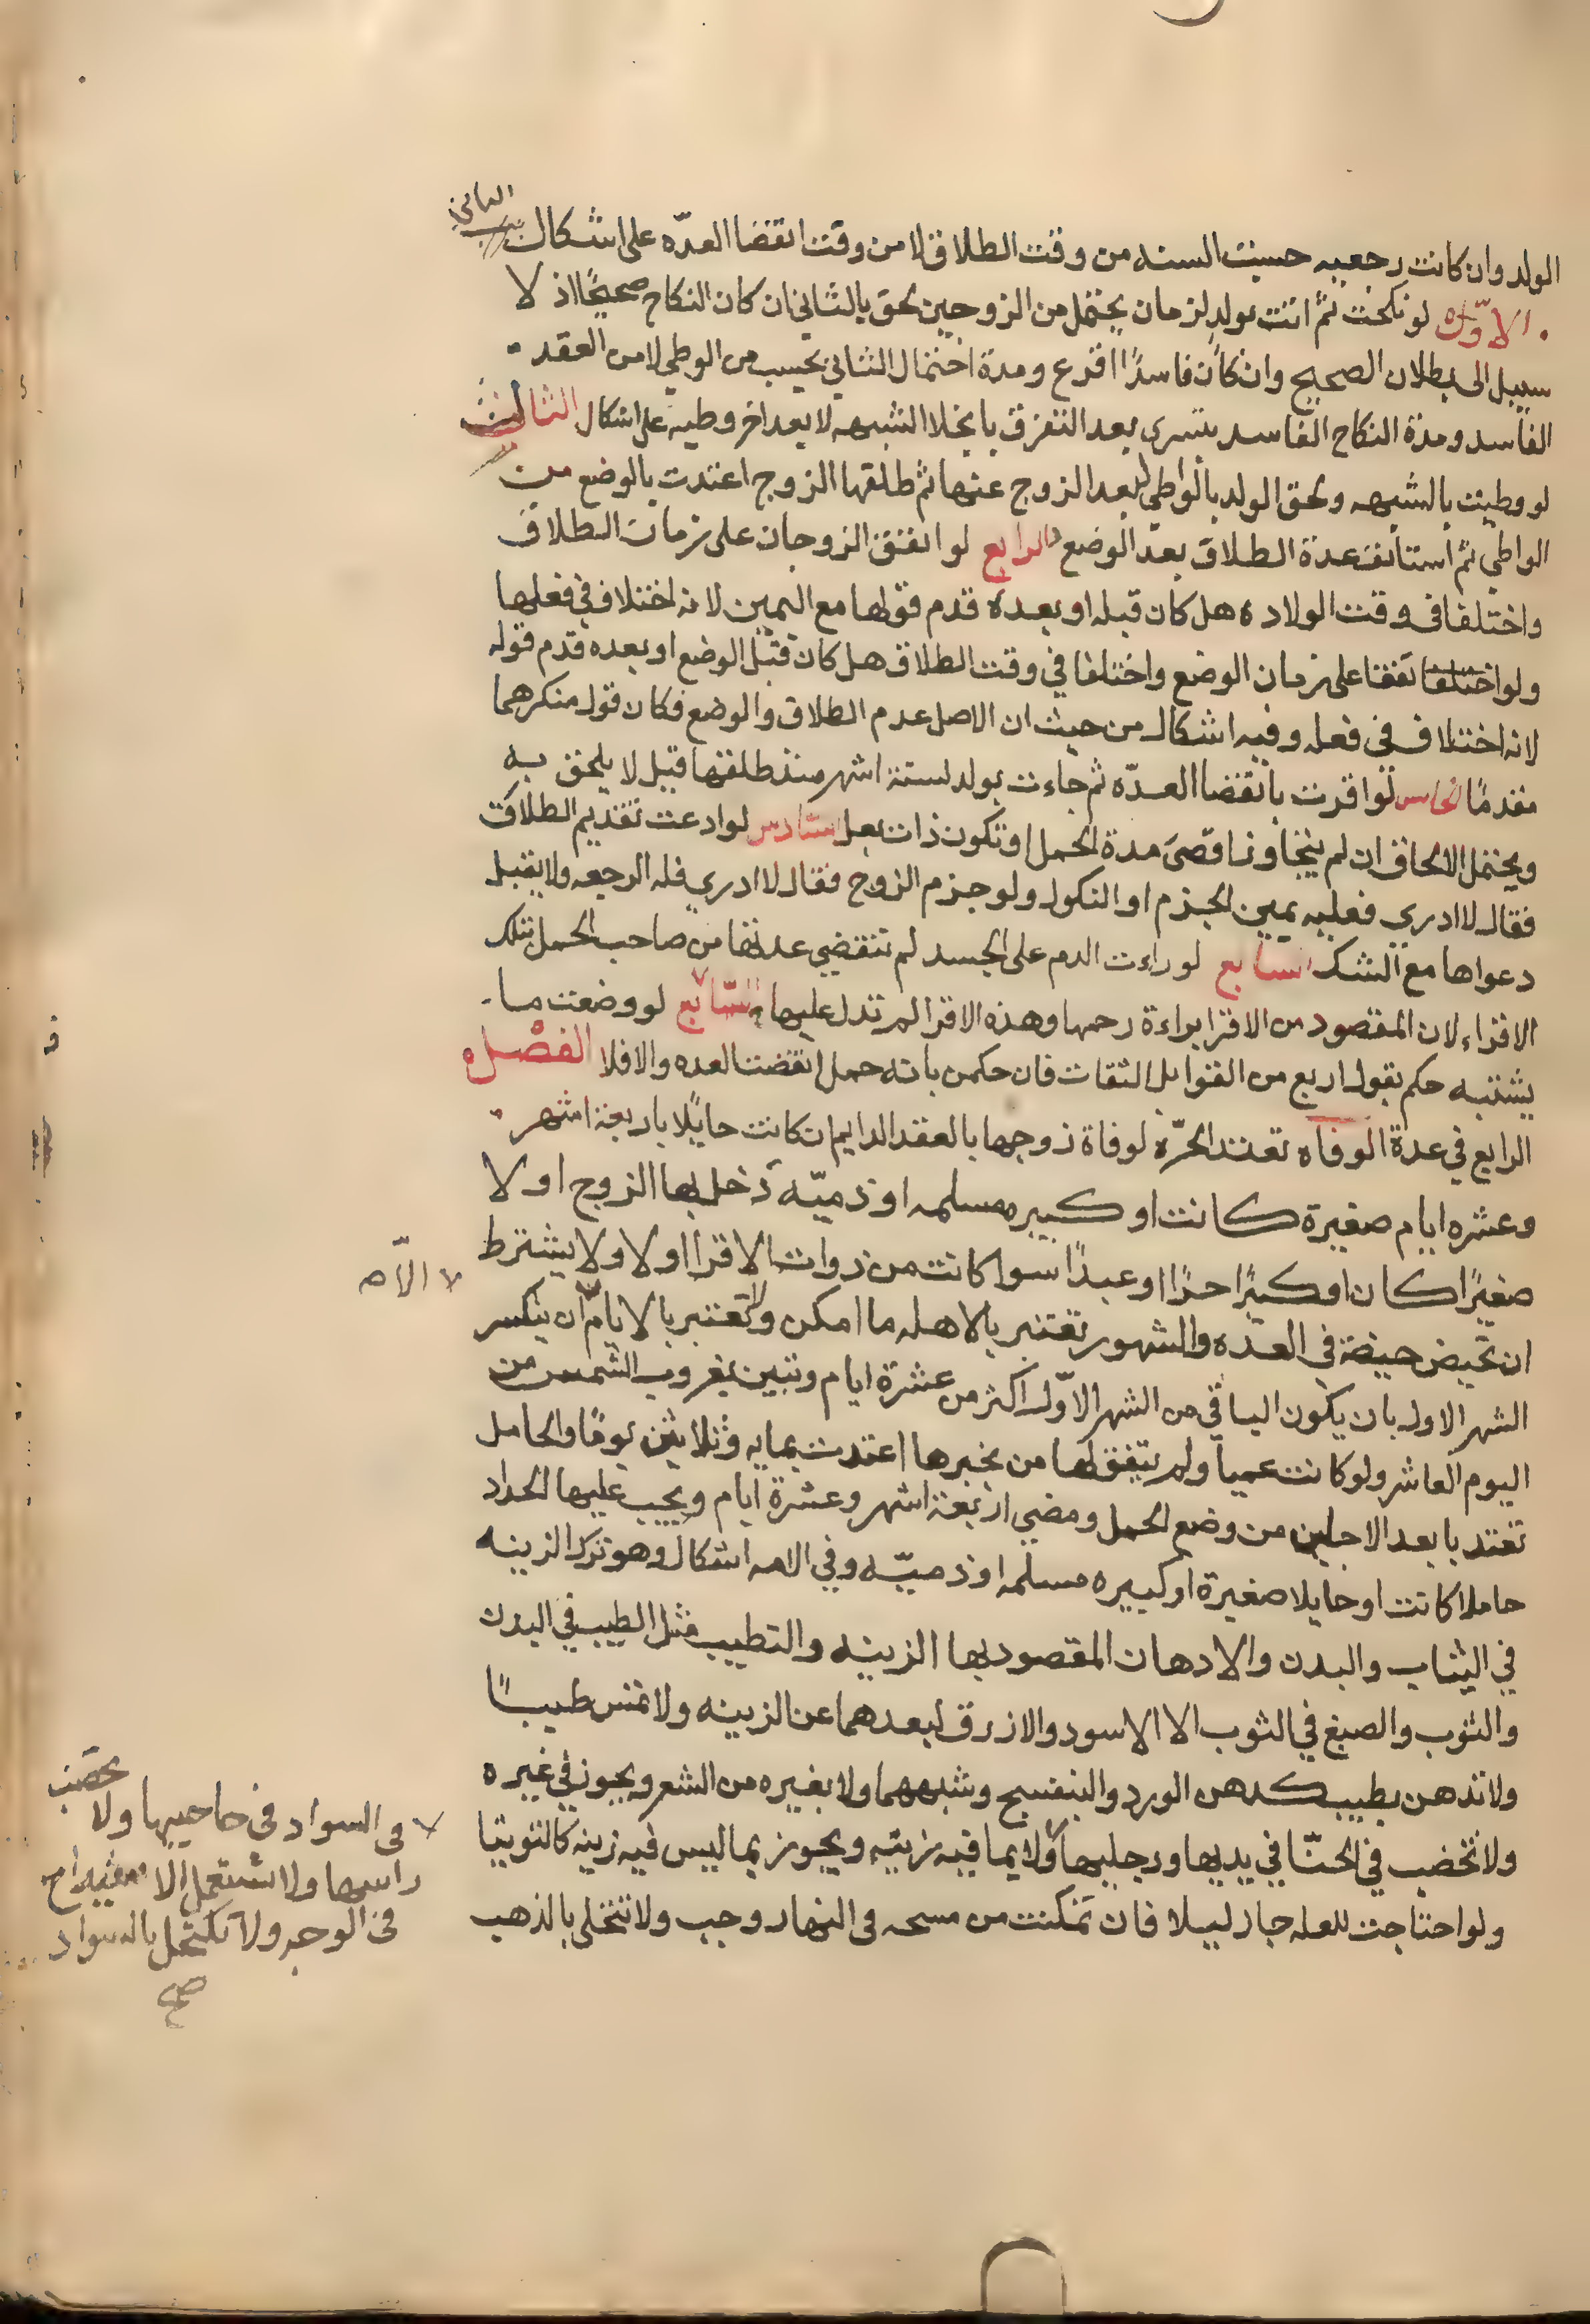 الولد وان كانت رجعيه حسبت السنه من وقت الطلاق لا من وقت انقضا العدّه على اشكال
الثاني
الاوّل لو نكحت ثم اتت بولد لزمان يحتمل من الزوجين لحق بالثاني ان كان النكاح صحيحًا اذ لا
سبيل الى بطلان الصحيح وان كان فاسدًا اقرع ومدة احتمال الثاني يحسب من الوطي لا من العقد
الفاسد ومدة النكاح الفاسد بعد التفرق بانجلا الشبهه لا بعد اخر وطيه على اشكال الثالث
لو وطيت بالشبهه ولحق الولد بالواطي لبعد الزوج عنها ثم طلقها الزوج اعتدت بالوضع من
الواطي ثم استانفت عدة الطلاق بعد الوضع الرابع لو اتفق الزوجان على زمان الطلاق
واختلفا في وقت الولاده هل كان قبله او بعده قدم قولها مع اليمين لانه اختلاف في فعلها
ولو اختلفا تفقا على زمان الوضع واختلفا في وقت الطلاق هل كان قبل الوضع او بعده قدم قوله
لانه اختلاف في فعله وفيه اشكال من حيث ان الاصل عدم الطلاق والوضع فكان قول منكرهما
مقدمًا الخامس لو اقرت بانقضا العدّه ثم جاءت بولد لستة اشهر منذ طلقها قيل لا يلحق به
ويحتمل الالحاق ان لم يتجاوز اقصى مدة الحمل او تكون ذات بعل السادس لو ادعت تقديم الطلاق
فقال لا ادري فعليه يمين الجزم او النكول ولو جزم الزوج فقال لا ادري فله الرجعه ولا يقبل
دعواها مع الشك السابع لو راءت الدم على الجسد لم تنقضي عدتها من صاحب الحمل بتلك
الاقراء لان المقصود من الاقرا براءة رحمها وهذه الاقرا لم تدل عليها السّابع لو وضعت ما
يشتبه حكم بقول اربع من القوابل الثقات فان حكمن بانه حمل انقضت العده والا فلا الفصل
الرابع في عدة الوفاه تعتد الحرّه لوفاة زوجها بالعقد الدايم ان كانت حايلًا باربعة اشهر
وعشره ايام صغيرة كانت او كبيره مسلمه او ذميّه دخل بها الزوج او لا
صغيرًا كان او كبيرًا حرًا او عبدًا سوا كانت من ذوات الاقرا او لا ولا يشترط
ان تحيض حيضة في العدّه والشهور تعتبر بالاهله ما امكن ولا تعتبر بالايام ان ينكسر
الّا صح
الشهر الاول بان يكون الباقي من الشهر الاوّل اكثر من عشرة ايام وتبين بغروب الشمس من
اليوم العاشر ولو كانت عميا ولم يتفق لها من يخبرها اعتدت بمايه وثلاثين يومًا والحامل
تعتد بابعد الاجلين من وضع الحمل ومضي اربعة اشهر وعشرة ايام ويجب عليها الحداد
حاملا كانت او حايلا صغيرة او كبيره مسلمه او ذميّه وفي الامه اشكال وهو ترك الزينه
في الثياب والبدن والادهان المقصود بها الزينه والتطيب مثل الطيب في البدن
والثوب والصبغ في الثوب الا الاسود والازرق لبعدهما عن الزينه ولا تمس طيبًا
ولا تدهن بطيب كدهن الورد والبنفسج وشبههما ولا بغيره من الشعر ويجوز في غيره
ولا تخضب في الحنّا في يديها ورجليها ولا بما فيه زينه ويجوز بما ليس فيه زينه كالتوتيا
ولو احتاجت للعله جاز ليلا فان تمكنت من مسحه في النهار وجب ولا تتحلى بالذهب
في السواد في حاجبيها ولا تخضب
راسها ولا تستعمل الاسفيداج
في الوجه ولا تكتحل بالسواد
صح